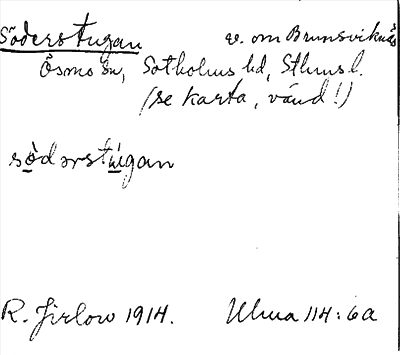 Söderstugan v. om Brunsviknäs
Ösmo sn, Sotholms hd, Sthms l.
(se karta, vänd!)
södərstúgan
R. Jirlow 1914. Ulma 114:6a